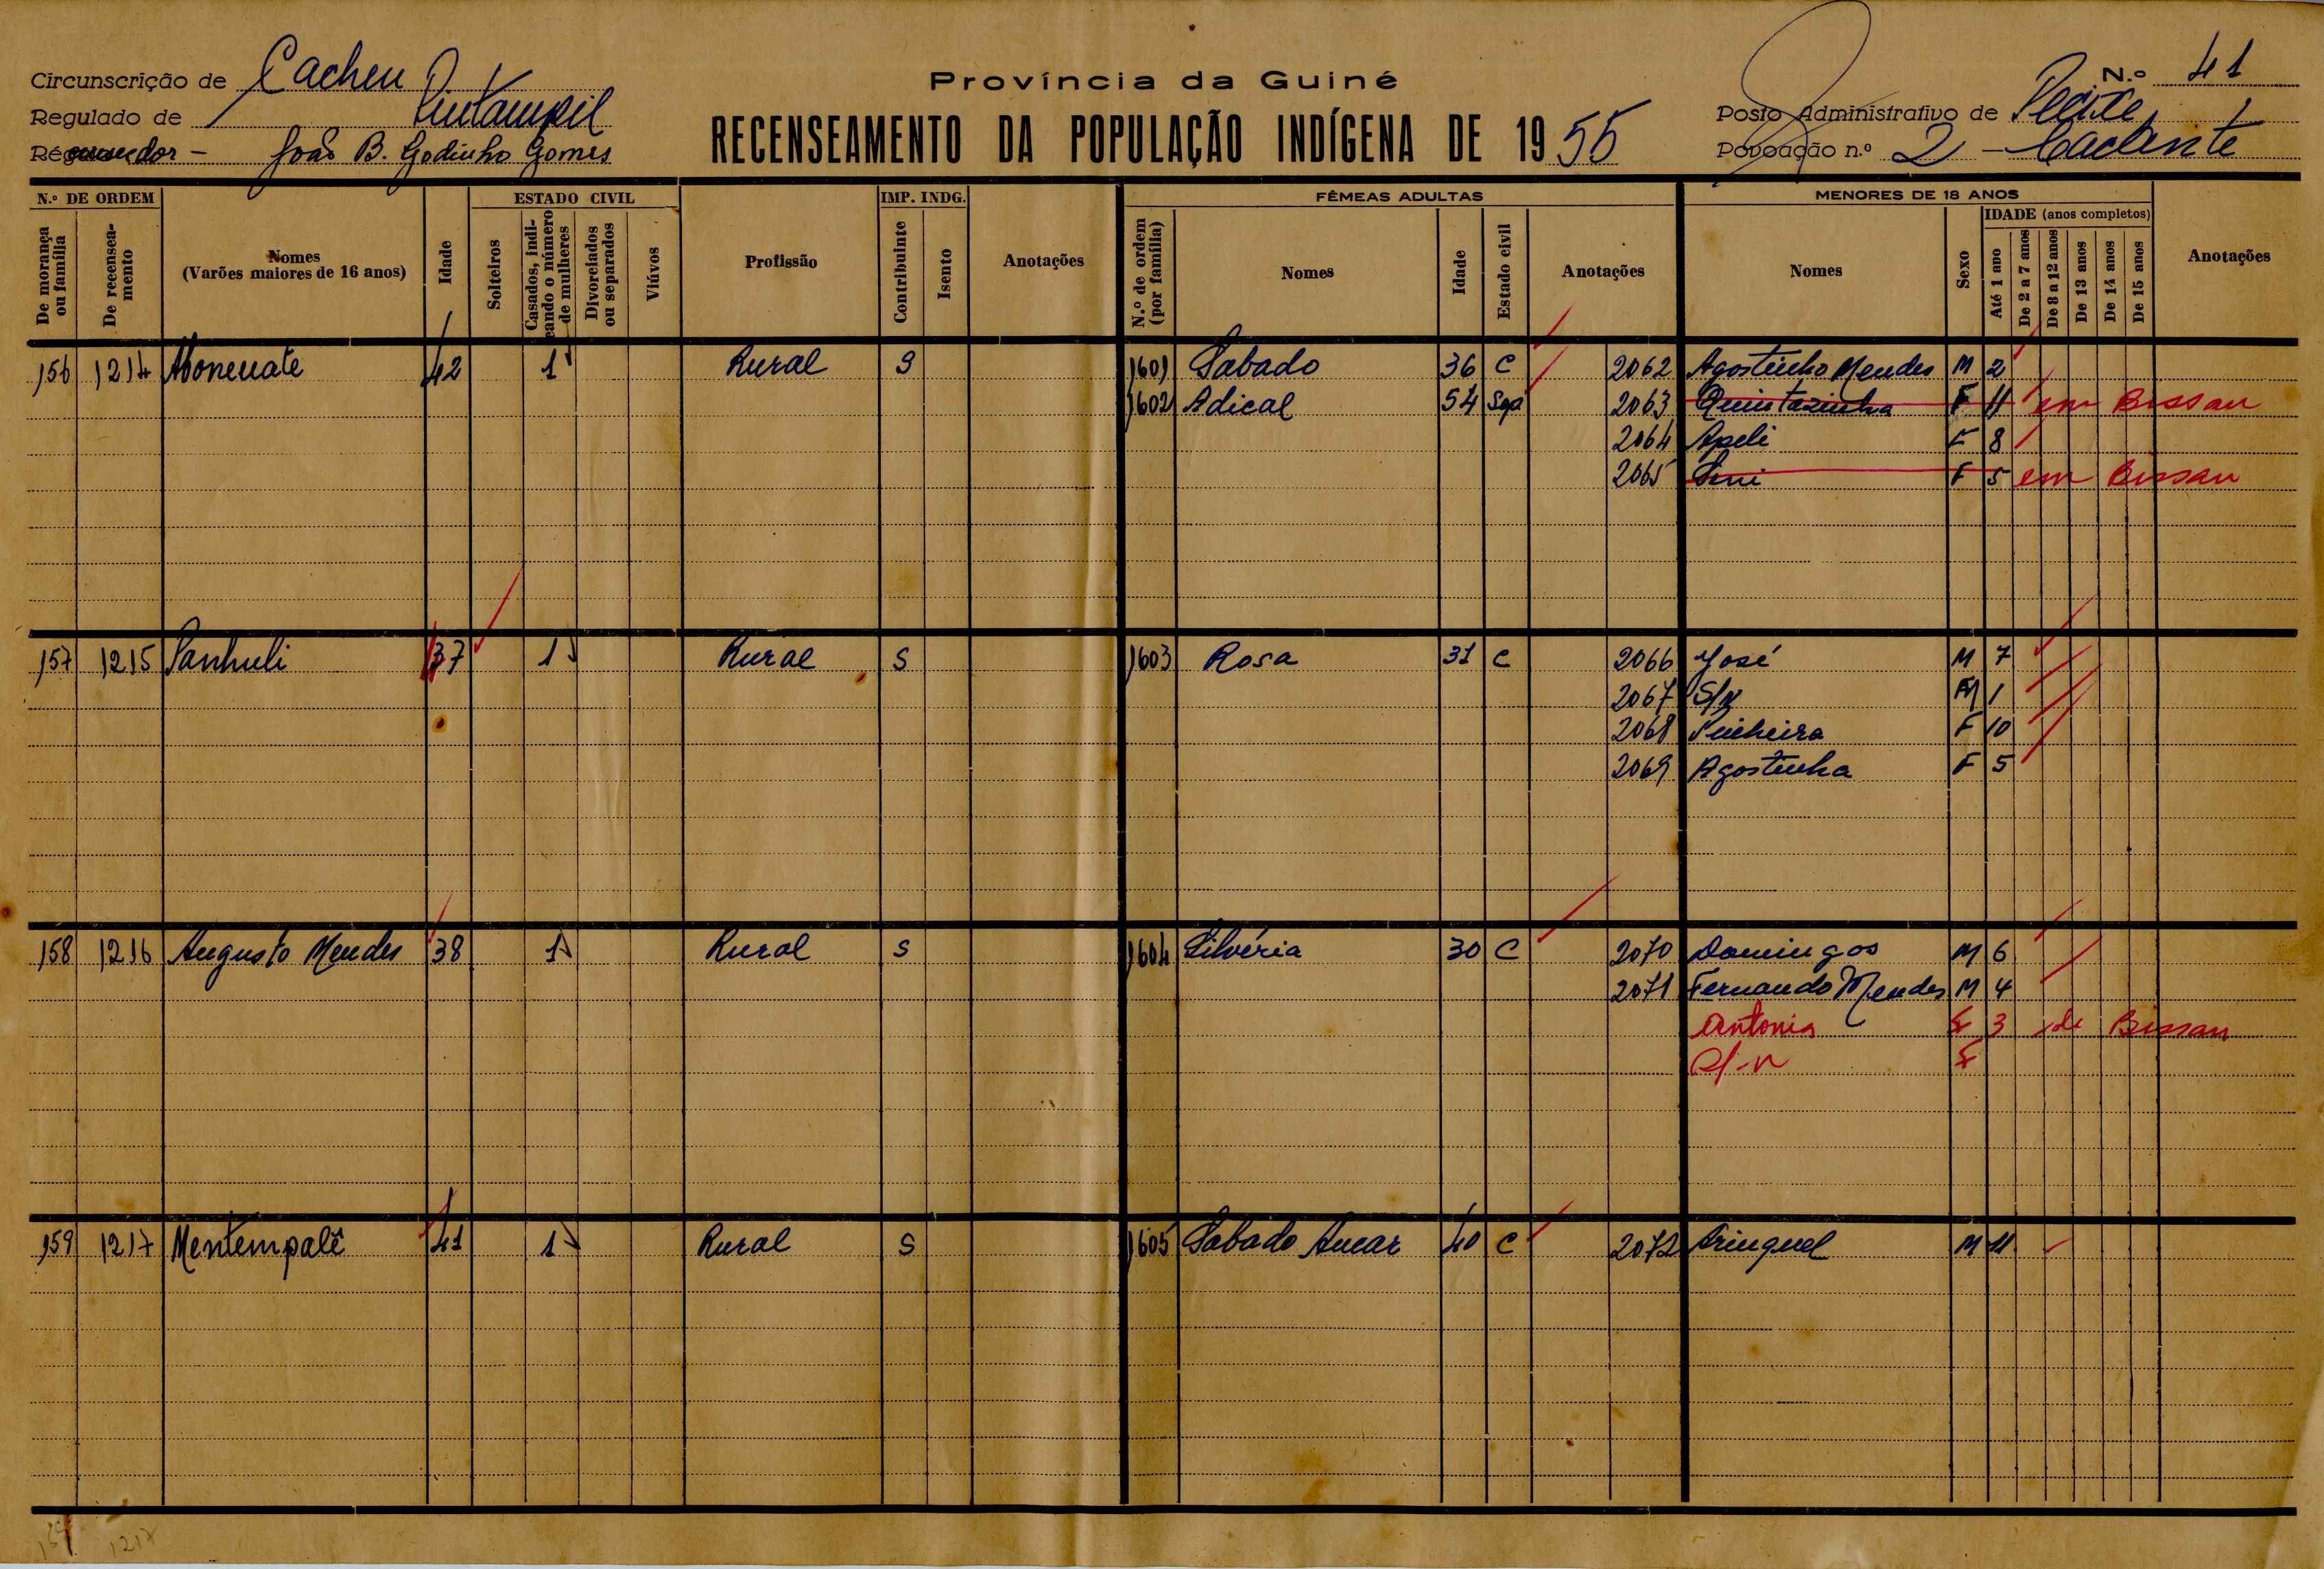 Província da Guiné
N.º 41
Circunscrição de Cacheu
Posto Administrativo de Pecixe
Regulado de
Recenseador - João B. Godinho Gomes
RECENSEAMENTO DA POPULAÇÃO INDÍGENA DE 1955
Povoação n.º 2 -
N.º DE ORDEM
De morança ou família
De recenseamento
Nomes
(Varões maiores de 16 anos)
Idade
ESTADO CIVIL
Solteiros
Casados, indicando o número de mulheres
Divorciados ou separados
Viúvos
Profissão
IMP. INDG.
Contribuinte
Isento
Anotações
FÊMEAS ADULTAS
N.º de ordem (por família)
Nomes
Idade
Estado civil
Anotações
MENORES DE 18 ANOS
Nomes
Sexo
IDADE (anos completos)
Até 1 ano
De 2 a 7 anos
De 8 a 12 anos
De 13 anos
De 14 anos
De 15 anos
Anotações
156 1214 42 1 Rural S 1601 Sabado 36 C 2062 Agostinho Mendes M 2
1602 Adical 54 Sep 2063 Quintazinha F 11 em Bissau
2064 Apeli F 8
2065 F 5 em Bissau
157 1215 Sanhuli 37 1 Rural S 1603 Rosa 31 C 2066 José M 7
2067 S/N M 1
2068 F 10
2069 Agostinha F 5
158 1216 Augusto Mendes 38 1 Rural S 1604 Silvéria 30 C 2070 Domingos M 6
2071 Fernando Mendes M 4
Antonia F 3 de Bissau
S/-N F
159 1217 Mentempalê 41 1 Rural S 1605 Sabado 40 C 2072 Aringuel M 11
159 1217